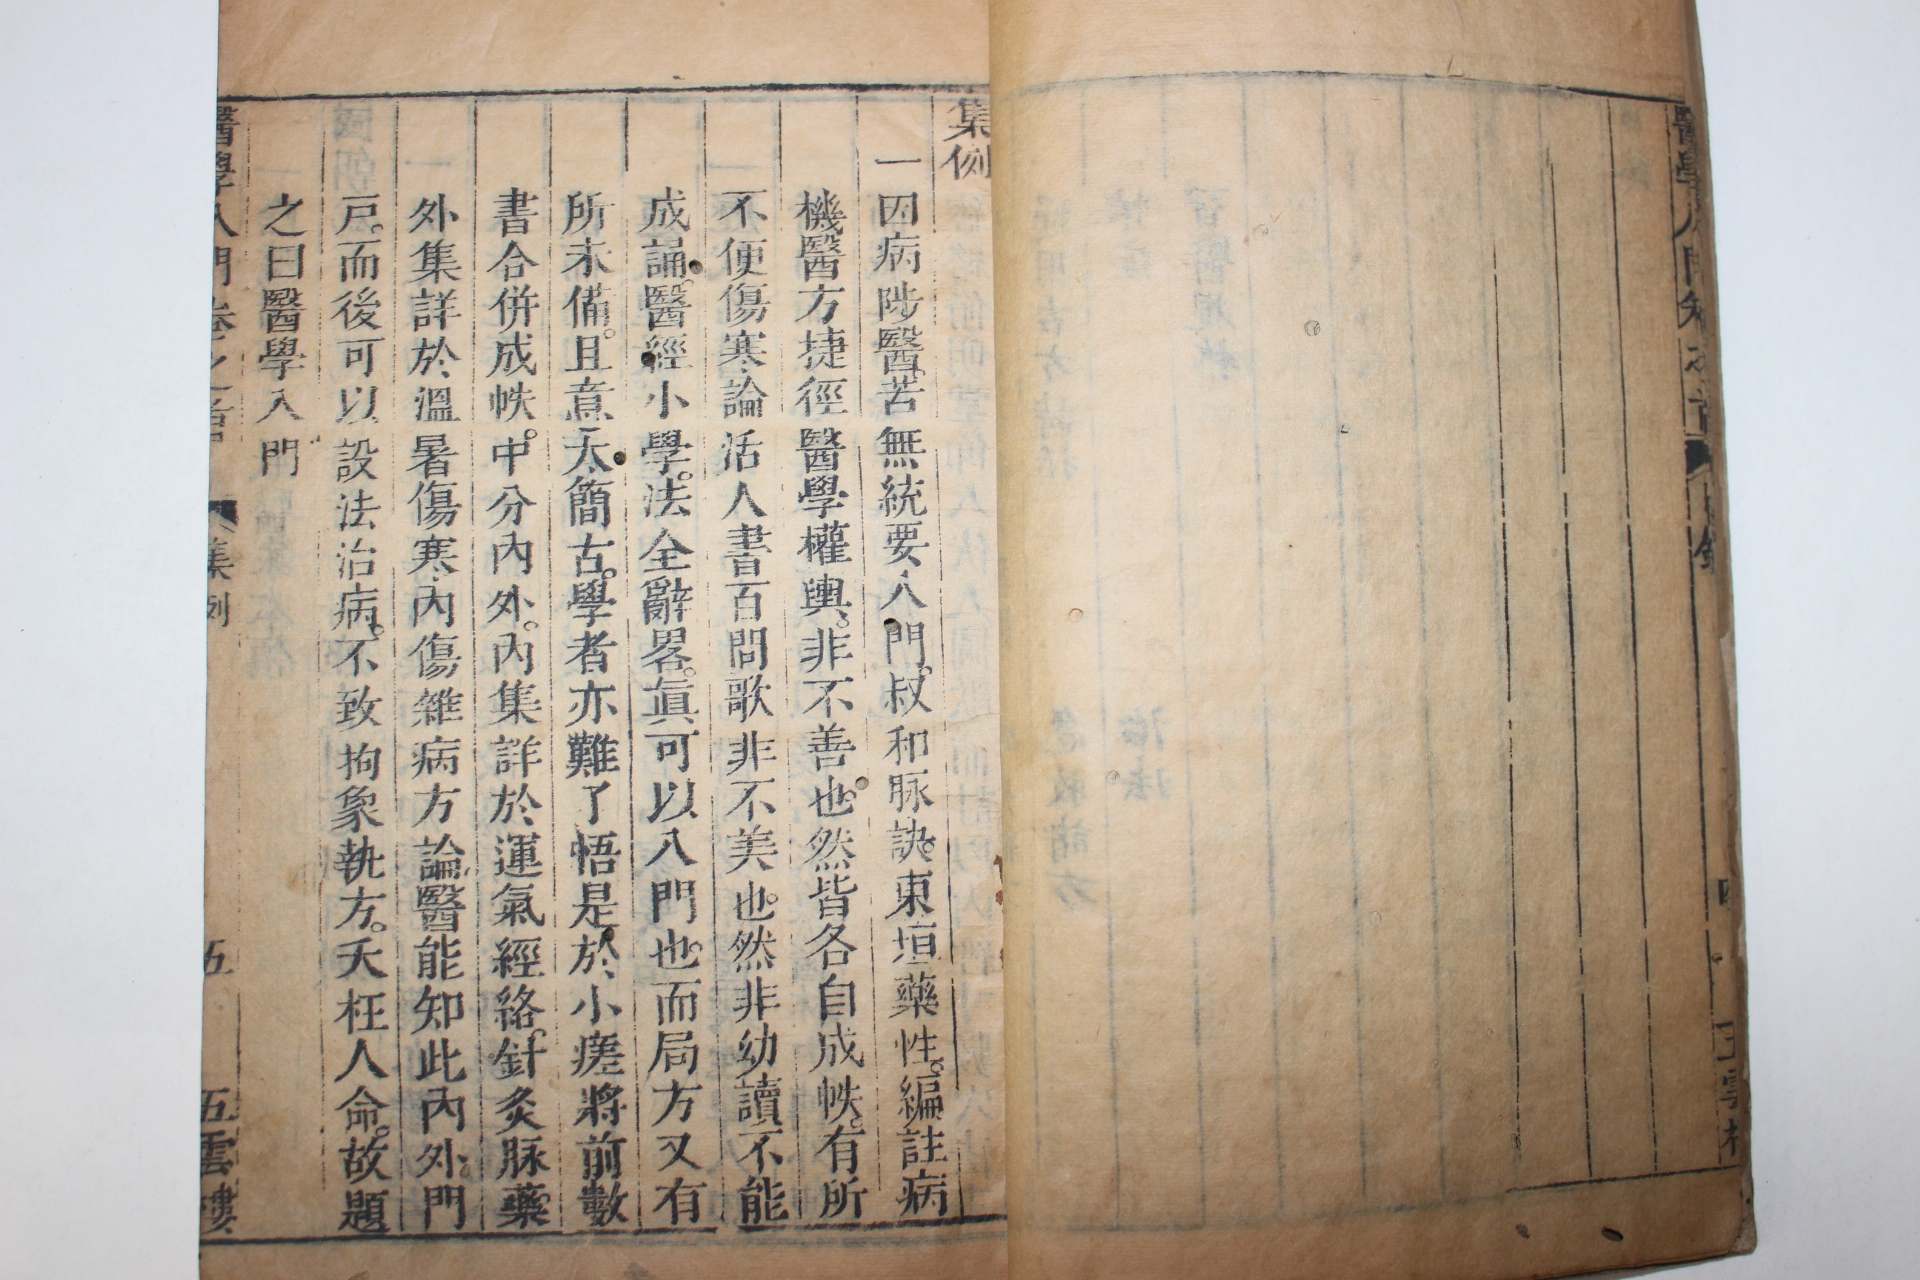 集例
一因病陟醫苦無統要入門叔和脉訣東垣藥性編註病
機醫方捷徑醫學權輿非不善也然皆各自成帙有所
不便傷寒論活人書百問歌非不美也然非幼讀不能
成誦醫經小學法全辭畧眞可以入門也而局方又有
所未備且意太簡古學者亦難了悟是於小瘥將前數
書合併成帙中分內外內集詳於運氣經絡針灸脉藥
外集詳於溫暑傷寒內傷雜病方論醫能知此內外門
戸而後可以設法治病不致拘象執方夭枉人命故題
之曰醫學入門
醫學入門卷之首 集例 五 五雲樓